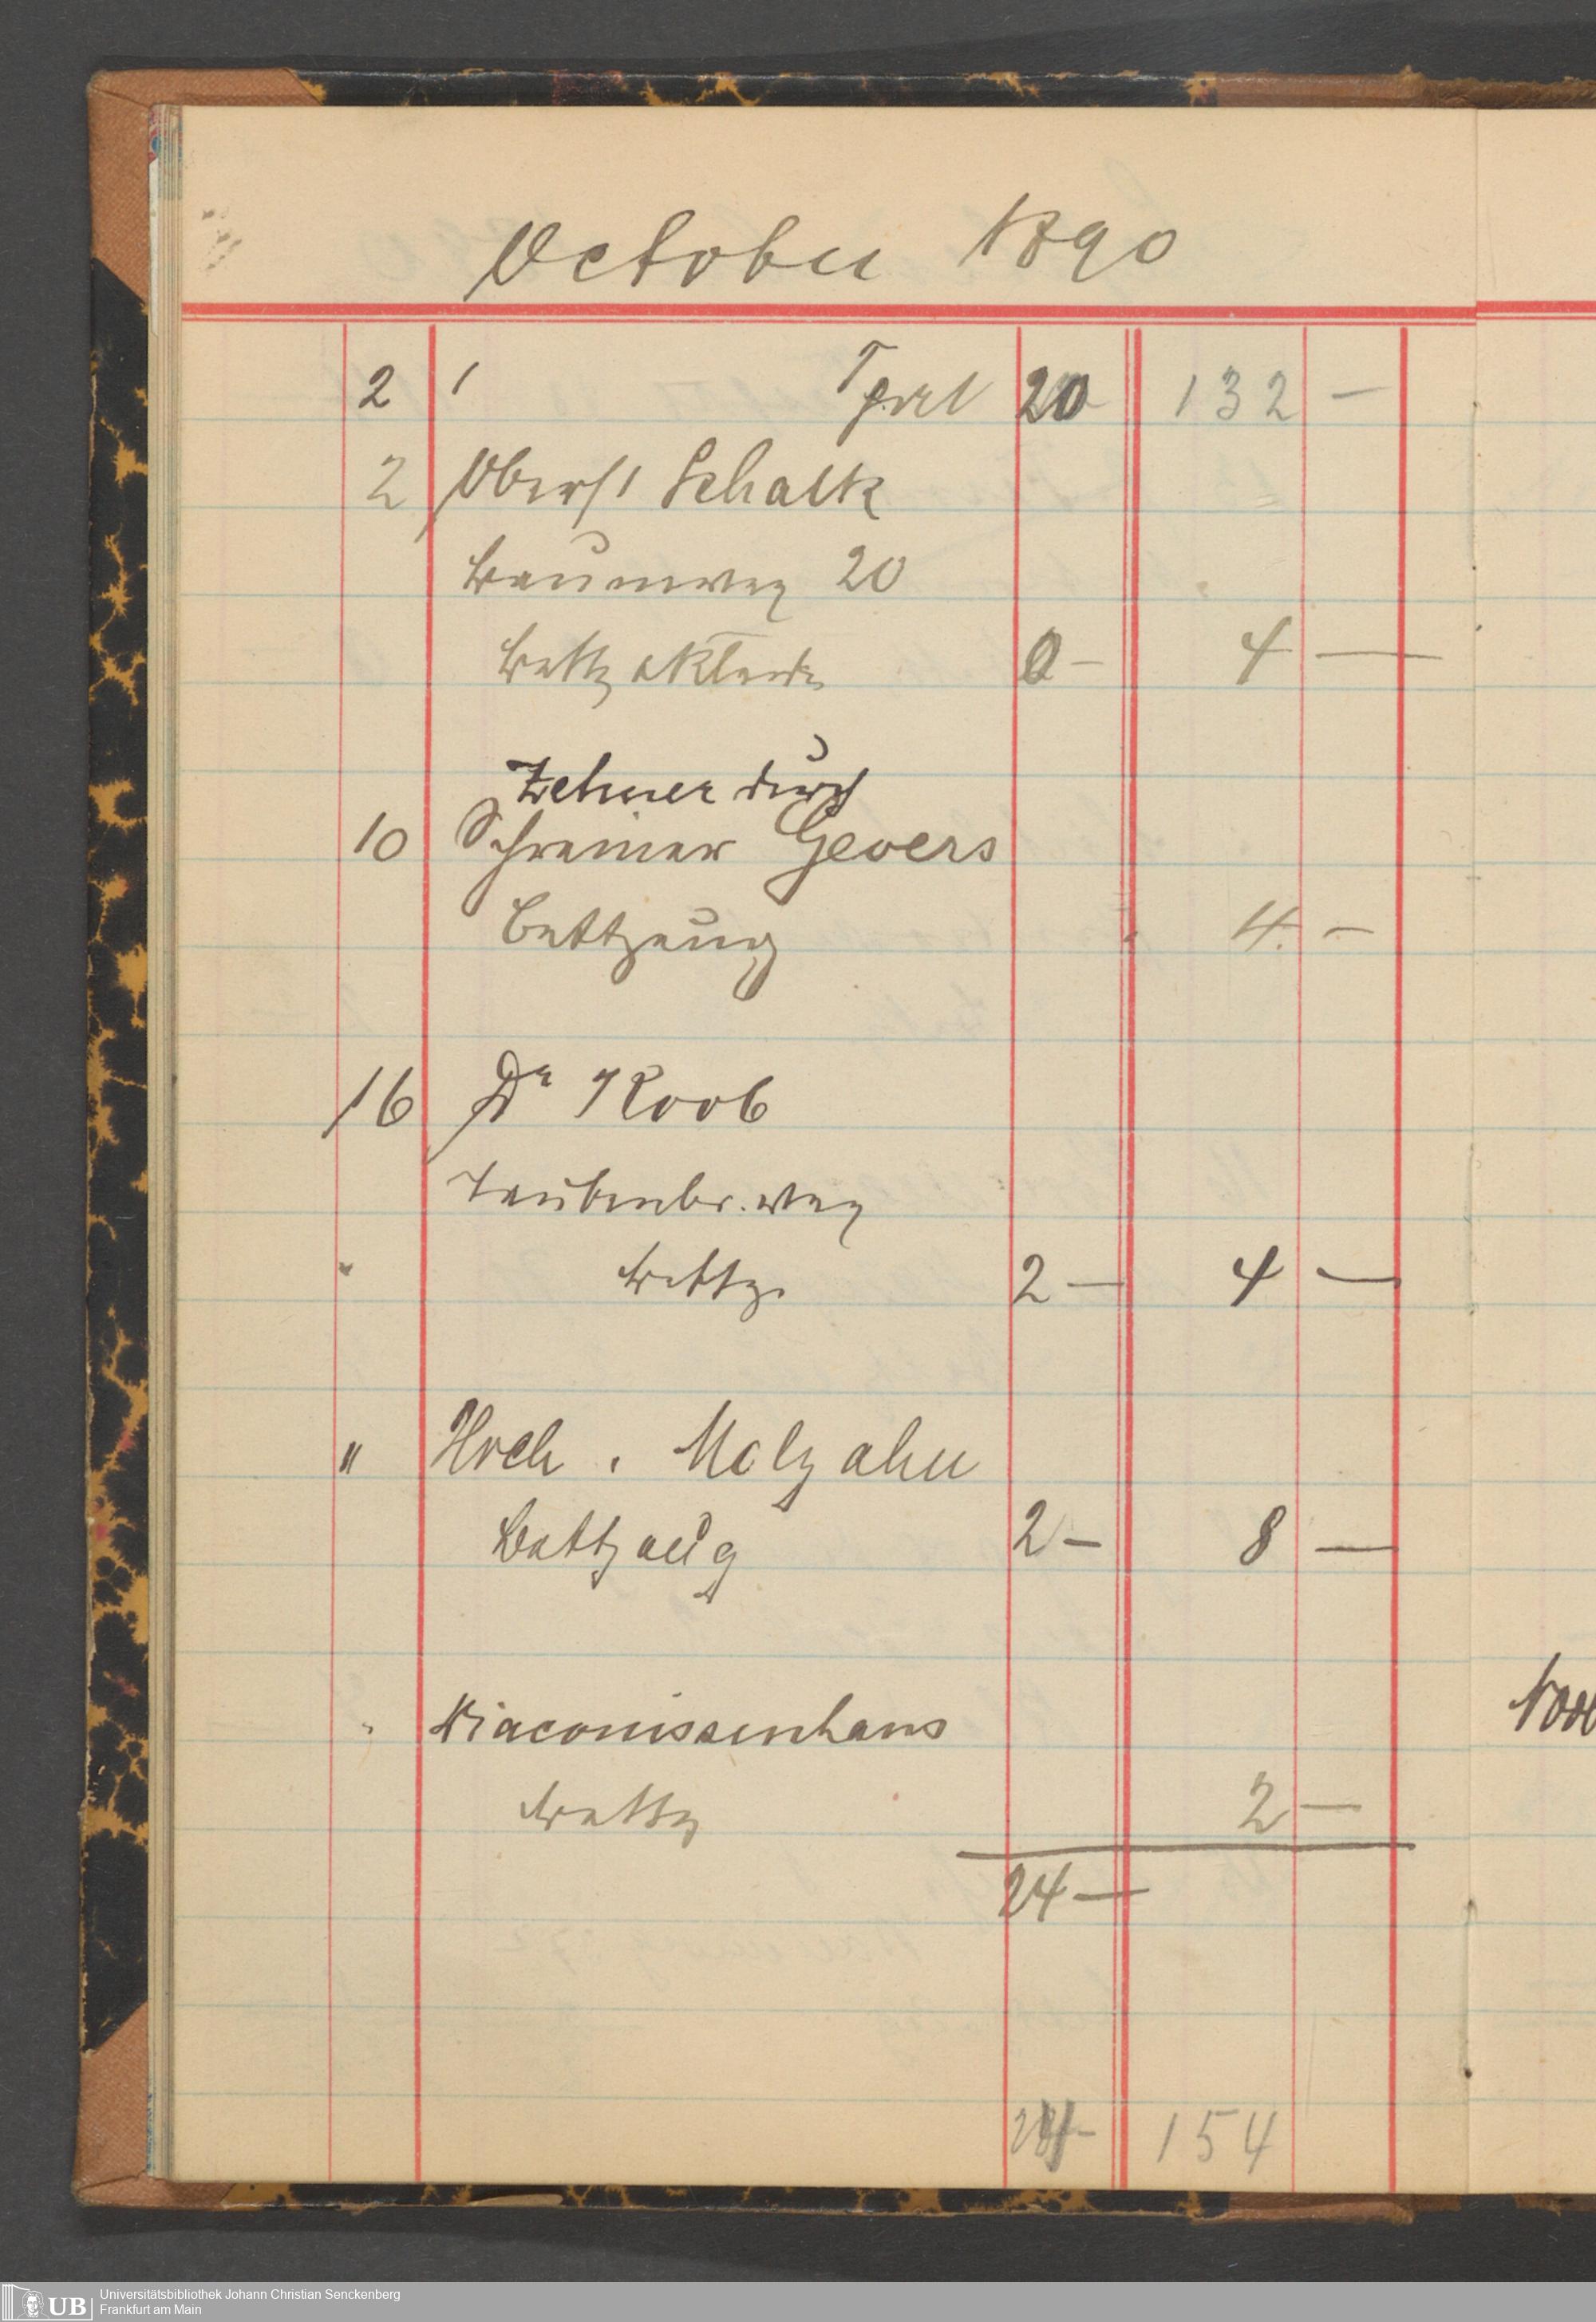 October 1890
2 1 Tprt 20 132 —
2 Oberst Schalk
Baumweg 20
Bettz 0 — 4 —
Zehner durch
10 Schreiner Gevers
Bettzeug 4. —
16 Dr Roob
Taubenbr. weg
" Bettz. 2 — 4 —
" Hrch. Molzahn
Bettzeug 2 — 8 —
" Diaconissenhaus
Bettz 2 —
24 —
24 — 154
UB Universitätsbibliothek Johann Christian Senckenberg
Frankfurt am Main